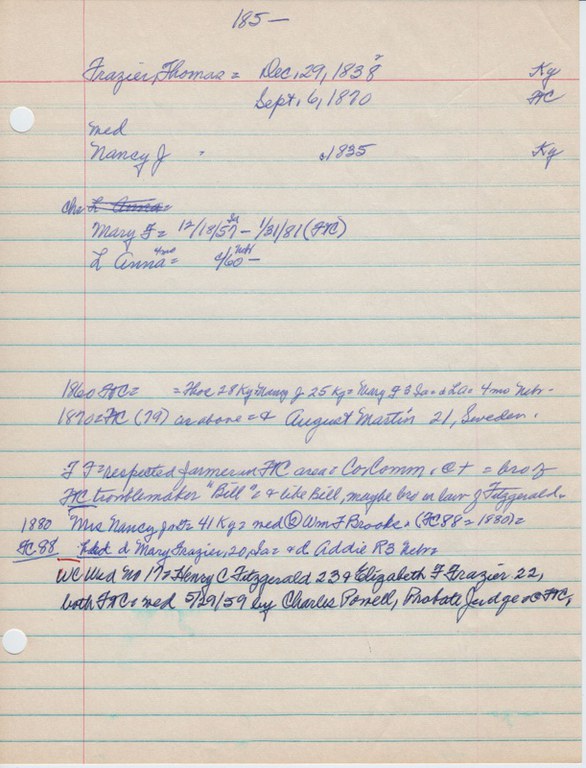 185-
Frazier, Thomas = Dec, 29, 1838 Ky
Sept. 6, 1870 FTC
med
Nancy J c1835 Ky
ch= L Anna=
Mary F = 12/18/57 Ia - 1/31/81 (FTC)
L Anna = 4mo c/60 Nebr -
1860 FTC = = Thos 28 Ky Nancy J 25 Ky = Mary F 3 Ia = & LA = 4 mo Nebr -
1870 = FTC (79) as above = & August Martin 21, Sweden.
T F = respected farmer in FTC area = Co Comm, = bro of
FTC troublemaker "Bill" & like Bill, maybe bro in law of Fitzgerald.
1880 Mrs Nancy 41 Ky = med ② Wm F Brooks, (FC88 = 1880) =
FC 88 d Mary Frazier, 20, Ia = & d Addie R 3 Nebr =
WC Wed No 17 = Henry C Fitzgerald 23 & Elizabeth F Frazier 22,
both FTC = med 5/29/59 by Charles Powell, Probate Judge @ FTC.